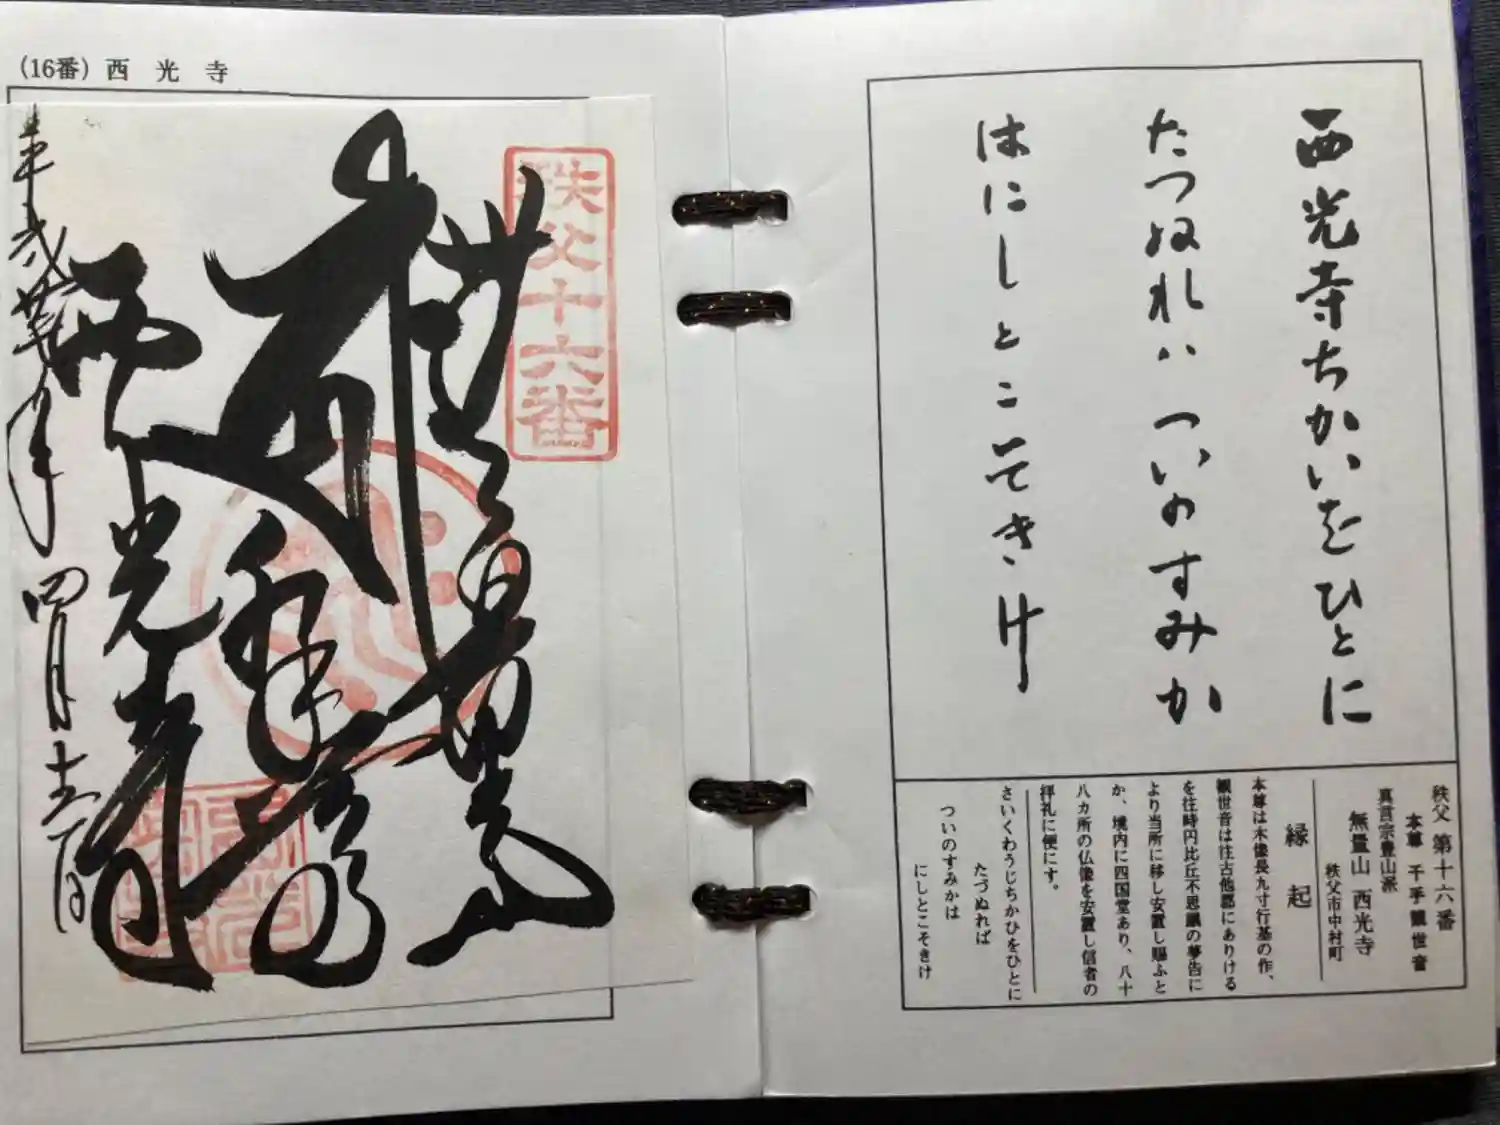 (16番) 西光寺
秩父十六番
無量山
千手
西光寺
平成廿年四月十六日
西光寺ちかいをひとに
たつぬれハついのすみか
はにしとこそきけ
秩父 第十六番
本尊 千手観世音
真言宗豊山派
無量山 西光寺
秩父市中村町
縁起
本尊は木像長九寸行基の作、
観世音は往古他郡にありける
を往時円比丘不思議の夢告に
より当所に移し安置し賜ふと
か、境内に四国堂あり、八十
八カ所の仏像を安置し信者の
拝礼に便にす。
さいくわうじちかひをひとに
たづぬれば
ついのすみかは
にしとこそきけ